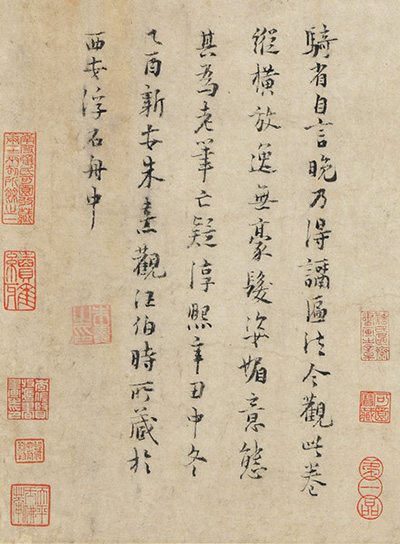 騎省自言晚乃得譎匾法今觀此卷
縱橫放逸無豪髮姿媚意態
其為老筆亡疑淳熙辛丑中冬
乙酉新安朱熹觀汪伯時所藏於
西安浮石舟中